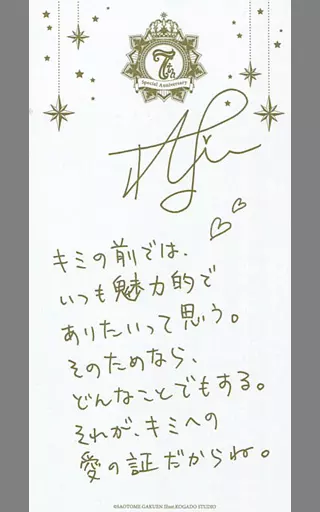 7th
Special Anniversary
キミの前では、
いつも魅力的で
ありたいって思う。
そのためなら、
どんなことでもする。
それが、キミへの
愛の証だからね。
©SAOTOME GAKUEN Illust.KOGADO STUDIO